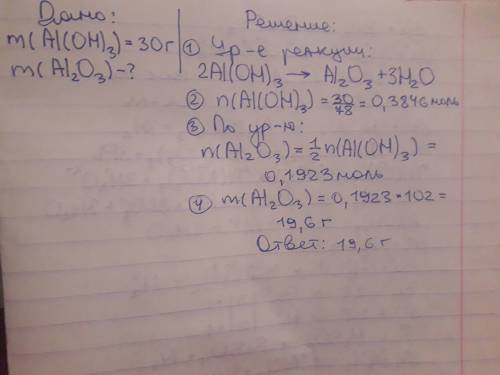 Дано:
m(Al(OH)₃)=30г
m(Al₂O₃)-?
Решение:
① Ур-е реакции:
2Al(OH)₃ → Al₂O₃ + 3H₂O
② n(Al(OH)₃) = 30/78 = 0,3846 моль
③ По ур-ю:
n(Al₂O₃) = 1/2 n(Al(OH)₃) =
0,1923 моль
④ m(Al₂O₃) = 0,1923 * 102 =
19,6 г
Ответ: 19,6 г